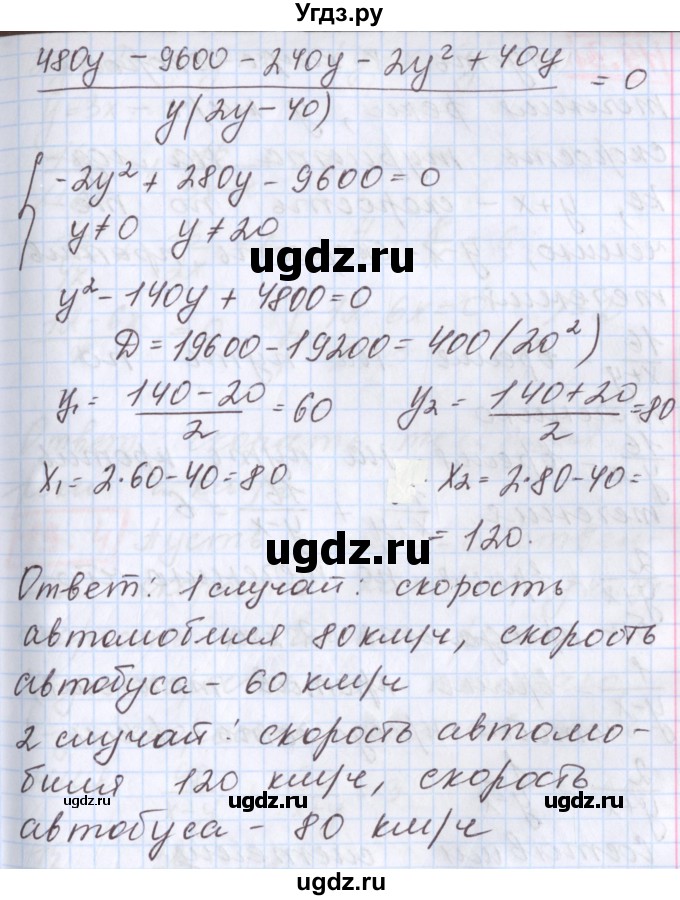 Угдз.ру
480y - 9600 - 240y - 2y² + 40y
y(2y - 40)
= 0
-2y² + 280y - 9600 = 0
y ≠ 0 y ≠ 20
ugdz.ru
y² - 140y + 4800 = 0
Д = 19600 - 19200 = 400 (20²)
y₁ = (140 - 20)/2 = 60 y₂ = (140 + 20)/2 = 80
x₁ = 2·60 - 40 = 80 x₂ = 2·80 - 40 =
ugdz.ru
= 120.
Ответ: 1 случай: скорость
автомобиля 80 км/ч, скорость
автобуса - 60 км/ч
ugdz.ru
2 случай: скорость автомо-
биля 120 км/ч, скорость
ugdz.ru ugdz.ru
автобуса - 80 км/ч
ugdz.ru